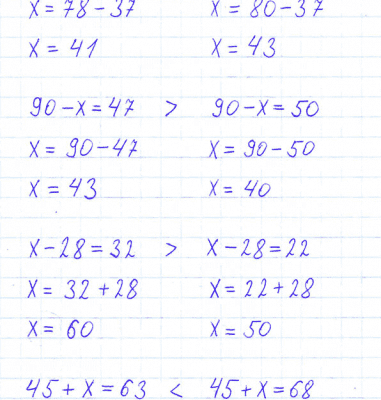 x = 78 - 37 x = 80 - 37
x = 41 x = 43
90 - x = 47 > 90 - x = 50
x = 90 - 47 x = 90 - 50
x = 43 x = 40
x - 28 = 32 > x - 28 = 22
x = 32 + 28 x = 22 + 28
x = 60 x = 50
45 + x = 63 < 45 + x = 68